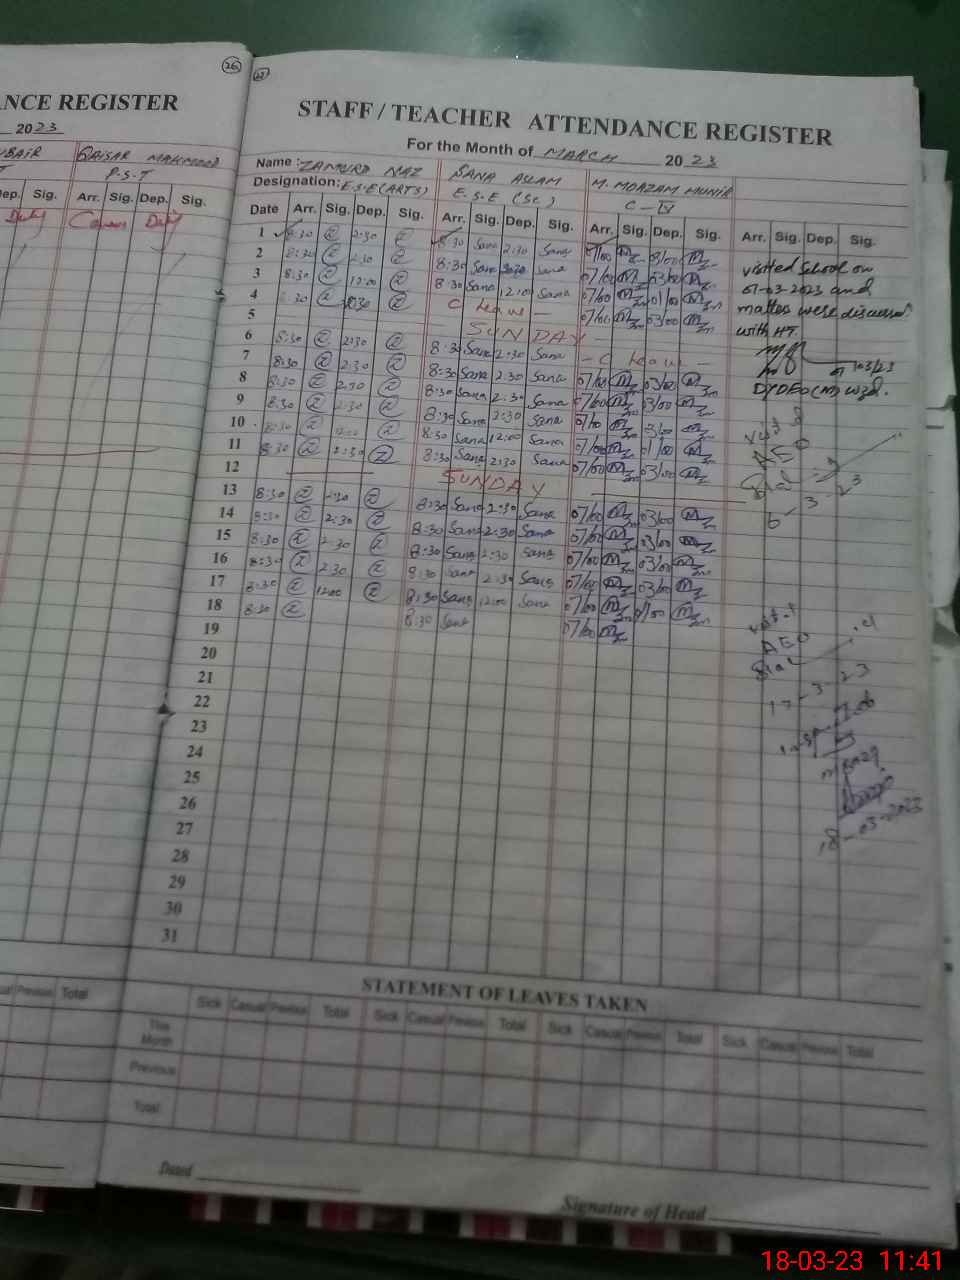 26
27
NCE REGISTER
2023
UBAIR QAISAR MAHMOOD
T P.S.T
ep. Sig. Arr. Sig. Dep. Sig.
Duty Census Duty
STAFF / TEACHER ATTENDANCE REGISTER
For the Month of MARCH 2023
Name : ZAMURD NAZ SANA ASLAM M. MOAZAM MUNIR
Designation: E.S.E (ARTS) E.S.E (SC) C-IV
Date Arr. Sig. Dep. Sig. Arr. Sig. Dep. Sig. Arr. Sig. Dep. Sig. Arr. Sig. Dep. Sig.
1 8:30 2:30 8:30 Sana 2:30 Sana 07/00 03/00
2 8:30 2:30 8:30 Sana 2:30 Sana 07/00 03/00
3 8:30 12:00 8:30 Sana 12:00 Sana 07/00 01/00
4 8:30 C leave - 07/00 03/00
5 SUNDAY -
6 8:30 2:30 8:30 Sana 2:30 Sana - C leave -
7 8:30 2:30 8:30 Sana 2:30 Sana 07/00 03/00
8 8:30 2:30 8:30 Sana 2:30 Sana 07/00 03/00
9 8:30 2:30 8:30 Sana 2:30 Sana 07/00 03/00
10 8:30 12:00 8:30 Sana 12:00 Sana 07/00 01/00
11 8:30 2:30 8:30 Sana 2:30 Sana 07/00 03/00
12 SUNDAY
13 8:30 2:30 8:30 Sana 2:30 Sana 07/00 03/00
14 8:30 2:30 8:30 Sana 2:30 Sana 07/00 03/00
15 8:30 2:30 8:30 Sana 2:30 Sana 07/00 03/00
16 8:30 2:30 8:30 Sana 2:30 Sana 07/00 03/00
17 8:30 12:00 8:30 Sana 12:00 Sana 07/00 01/00
18 8:30 8:30 Sana 07/00
19
20
21
22
23
24
25
26
27
28
29
30
31
visited School on
01-03-2023 and
matters were discussed
with HT.
DYDEO (M) wzd.
visit of
AEO
6-3-23
visit of
AEO
17-3-23
18-03-2023
STATEMENT OF LEAVES TAKEN
Previous Total
Sick Casual Previous Total Sick Casual Previous Total Sick Casual Previous Total Sick Casual Previous Total
This Month
Previous
Total
Dated
Signature of Head
18-03-23 11:41